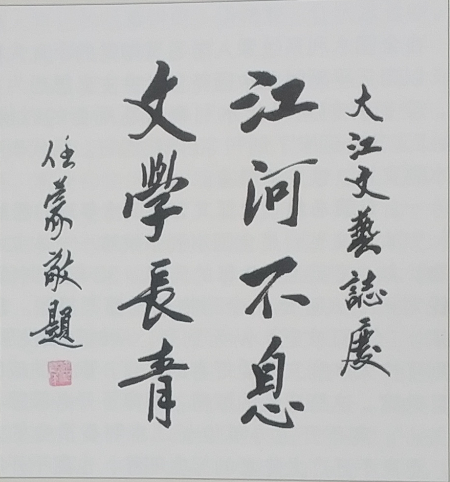 大江文藝誌慶
江河不息
文學長青
任蒙敬題